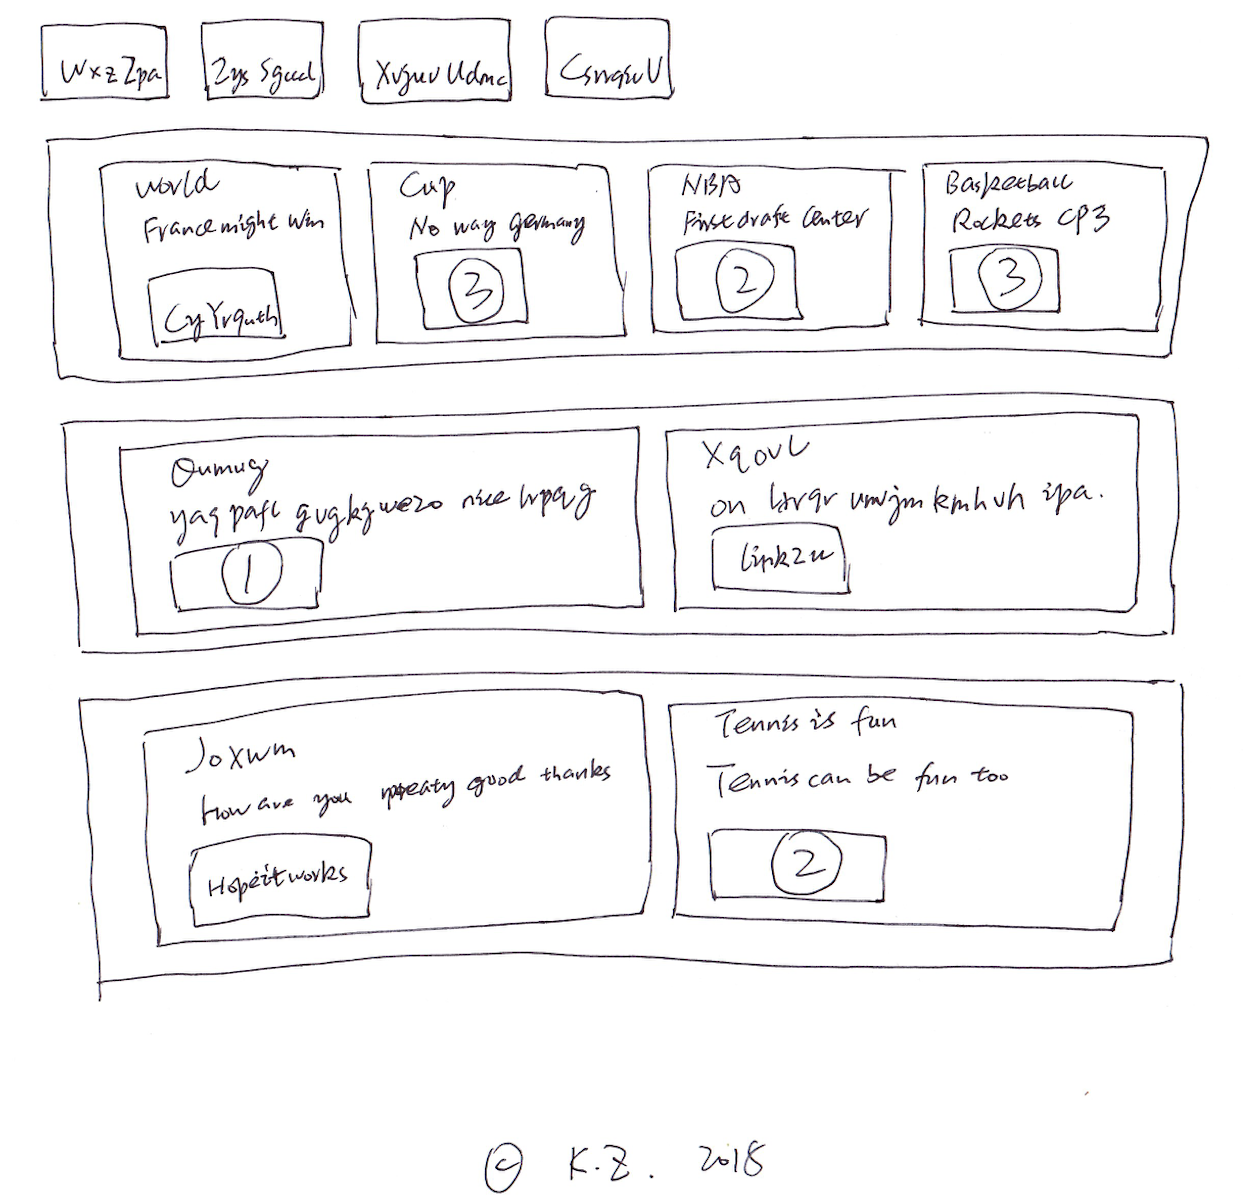 WxzZpa
Zys Sgucl
XvjuvUdmc
CsnqwU
World
France might Win
CyYrquth
Cup
No way Germany
3
NBA
First draft Center
2
Basketball
Rockets CP3
3
Oumug
yaq pafl gvgkgwezo nice
1
XqovL
on umvjmkmhvh ipa.
link2u
Joxwm
How are you good thanks
Hopeitworks
Tennis is fun
Tennis can be fun too
2
© K.Z. 2018